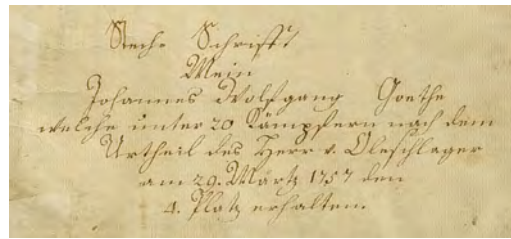 Stech- Schrifft
Mein
Johannes Wolfgang Goethe
welche unter 20 Kämpfern nach dem
Urtheil des Herr v. Oleschlager
am 29. Märtz 1757 den
4. Platz erhalten.